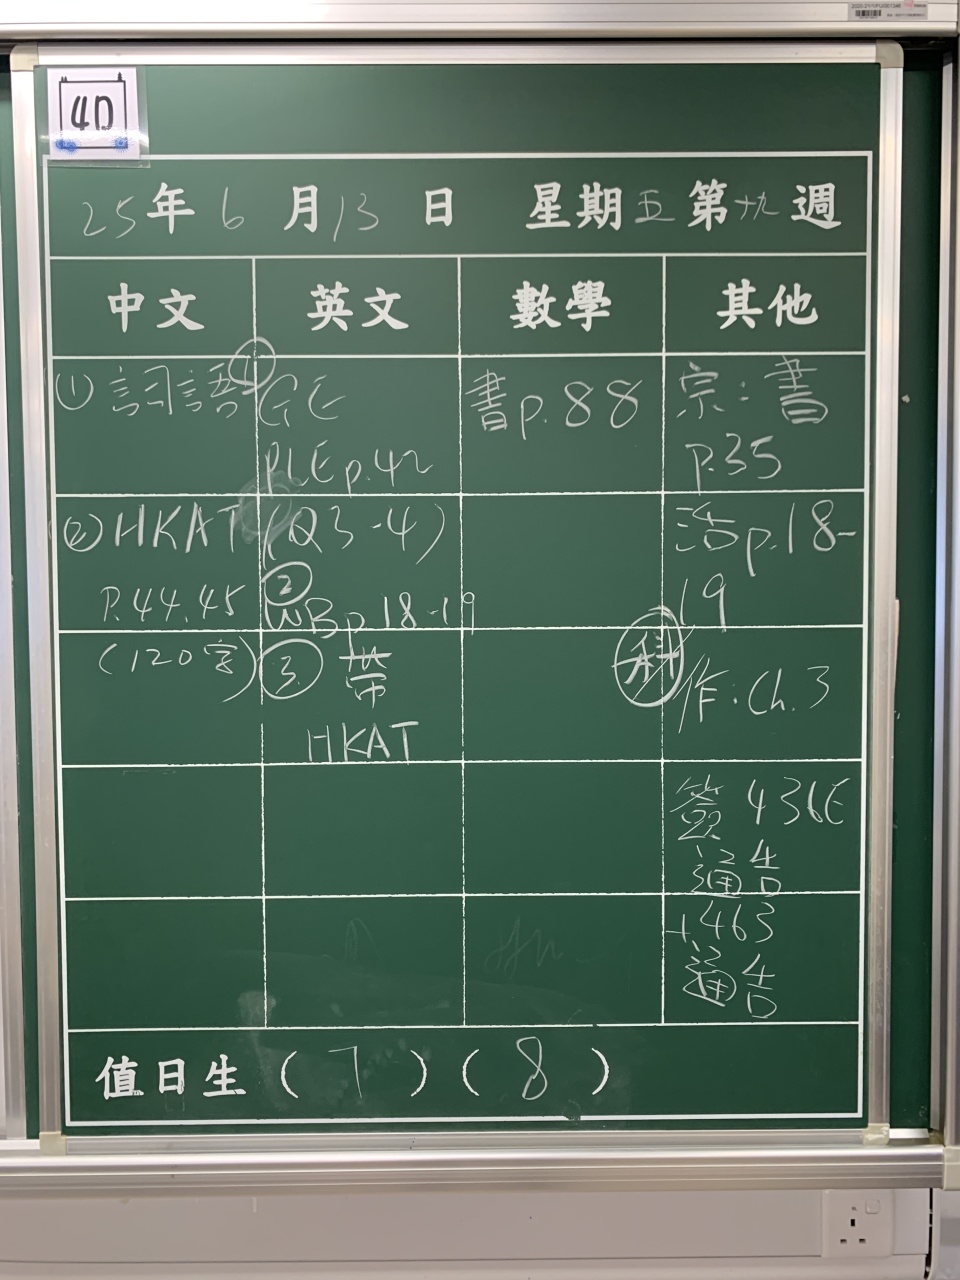 4D
25年6月13日 星期五第十九週
中文 英文 數學 其他
① 詞語
② HKAT
P.44.45
(120字)
① GE
PLE p.42
(Q3-4)
② WB p.18-19
③ 帶
HKAT
書p.88
宗:書
P.35
活p.18-
19
科 作:Ch.3
簽 436E
通告
+463
通告
值日生 ( 7 ) ( 8 )